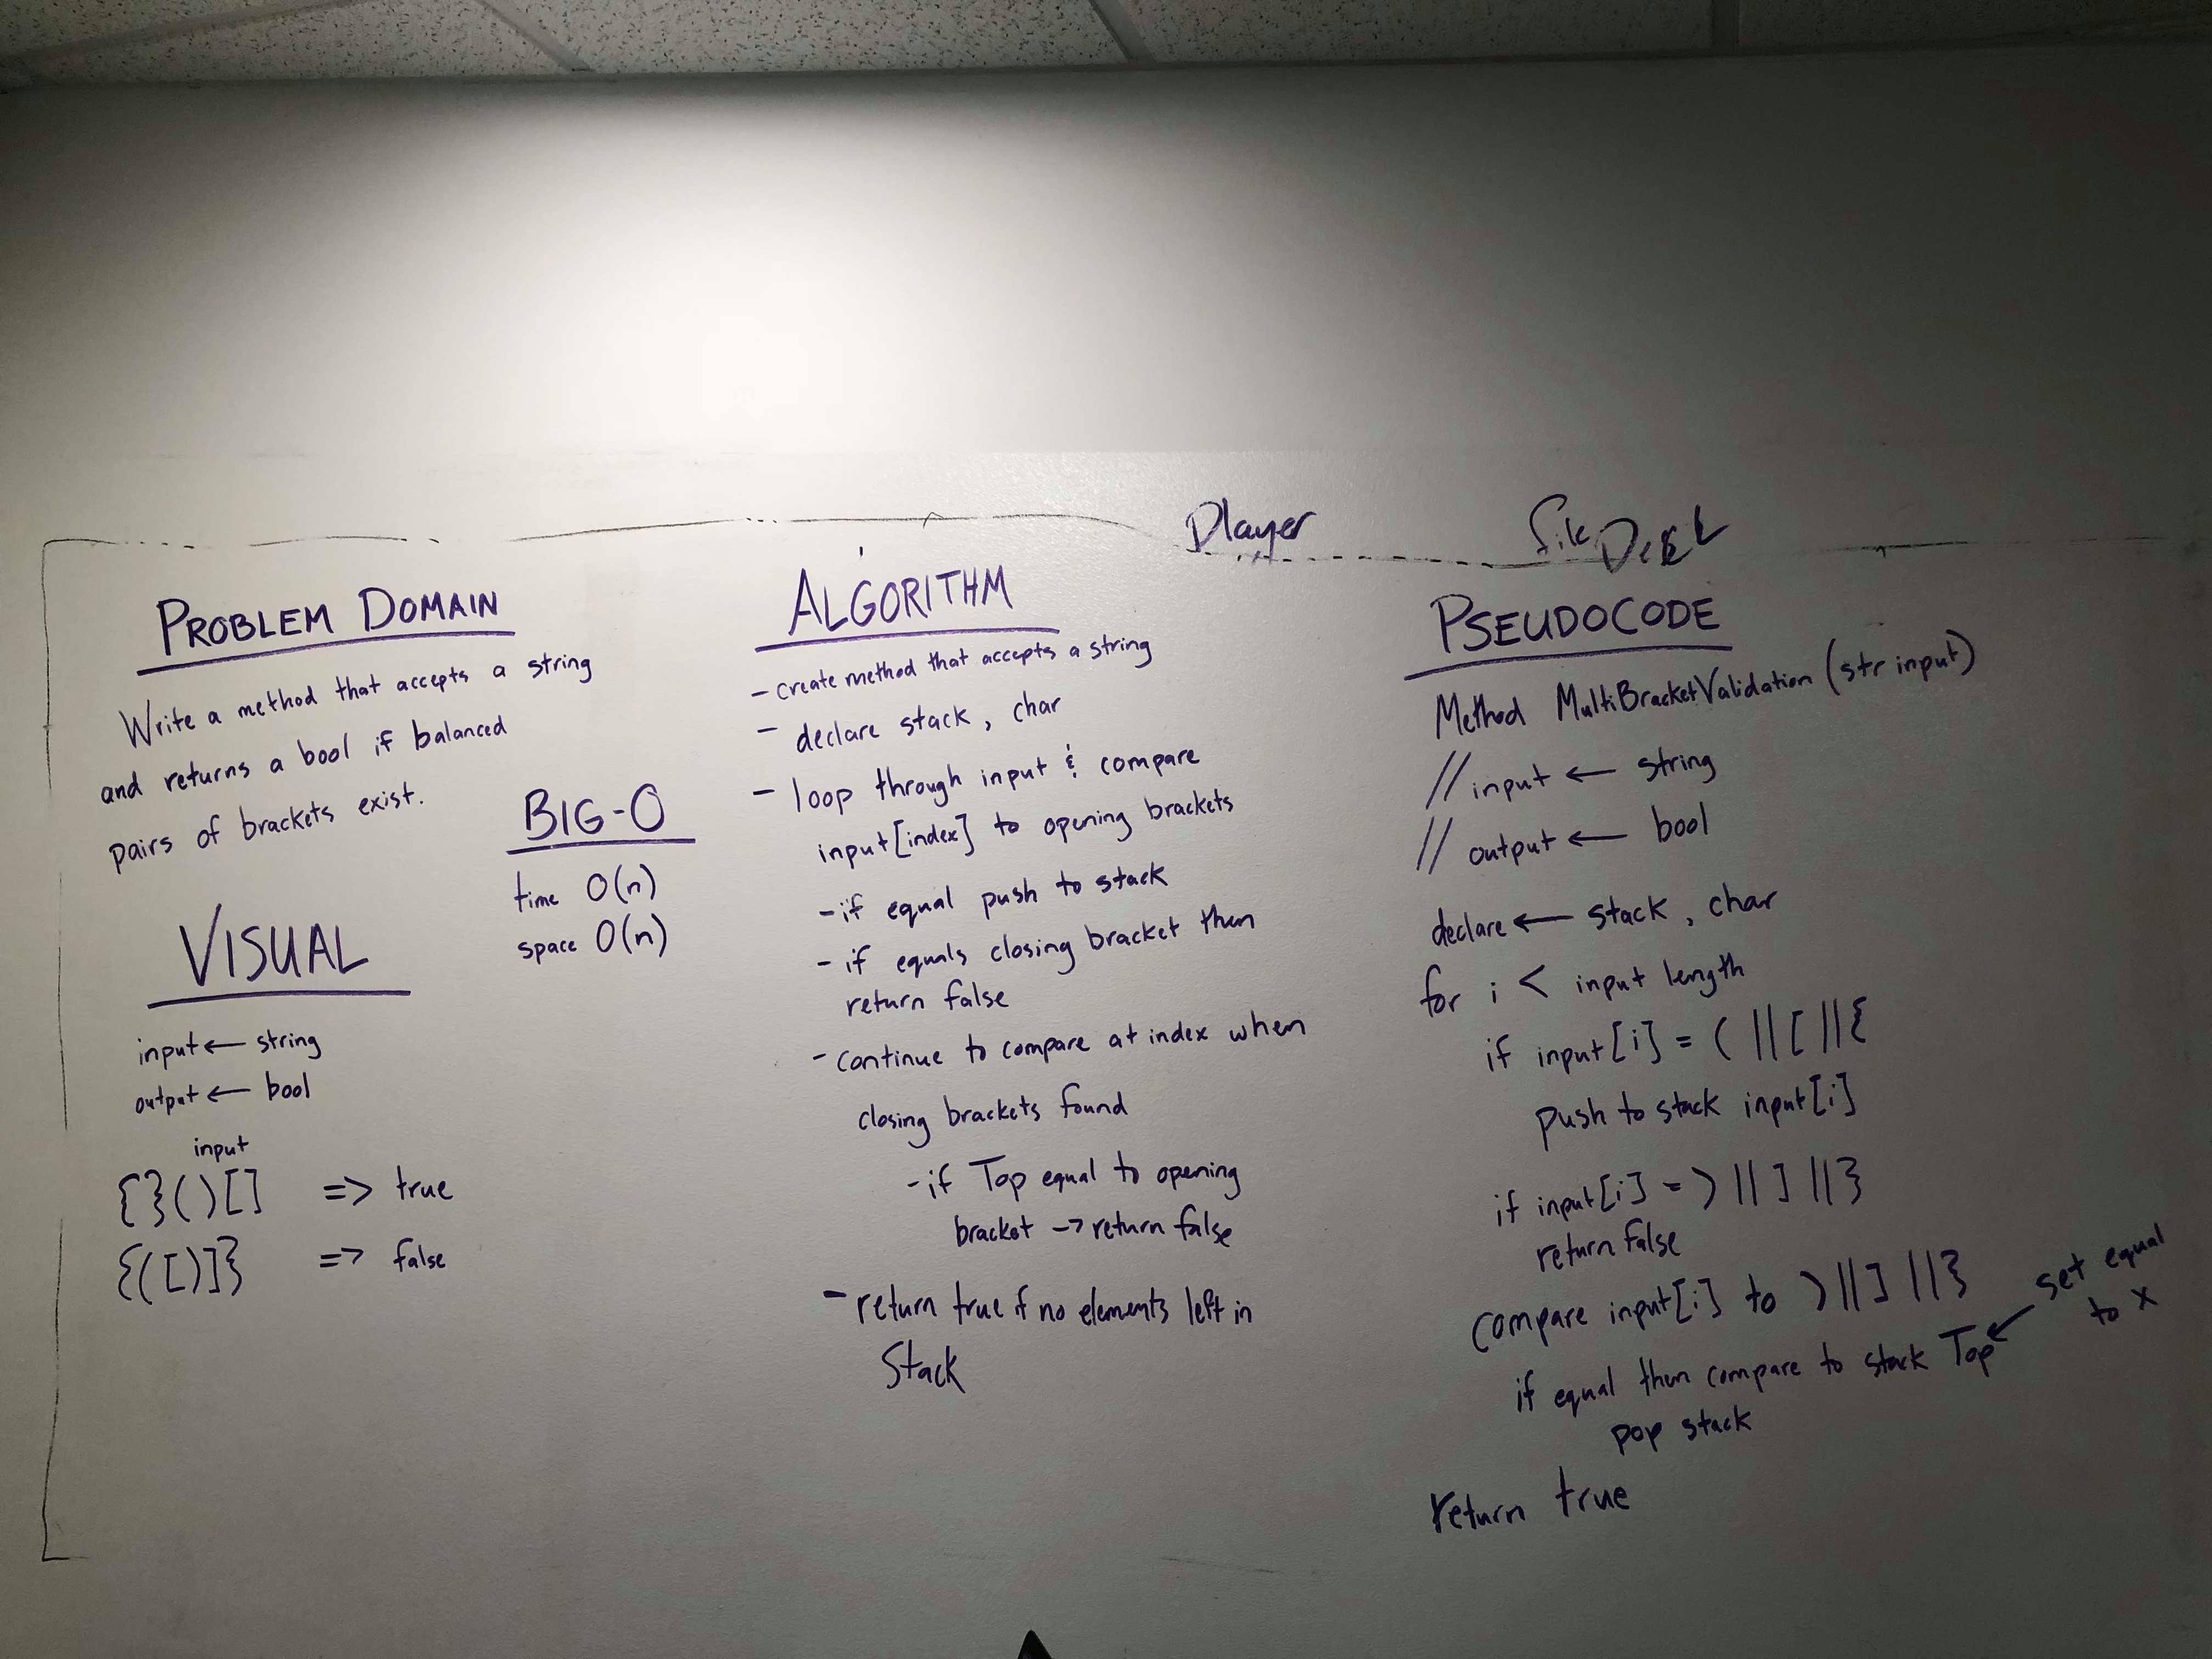 Player
PROBLEM DOMAIN
Write a method that accepts a string
and returns a bool if balanced
pairs of brackets exist.
BIG-O
time O(n)
space O(n)
VISUAL
input ← string
output ← bool
input
{}()[] => true
{([)]} => false
ALGORITHM
- create method that accepts a string
- declare stack, char
- loop through input & compare
input[index] to opening brackets
- if equal push to stack
- if equals closing bracket then
return false
- continue to compare at index when
closing brackets found
- if Top equal to opening
bracket → return false
- return true if no elements left in
Stack
PSEUDOCODE
Method MultiBracketValidation (str input)
// input ← string
// output ← bool
declare ← stack, char
for i < input length
if input[i] = ( || [ || {
push to stack input[i]
if input[i] = ) || ] || }
return false
compare input[i] to ) || ] || }
if equal then compare to stack Top ← set equal
to x
pop stack
return true